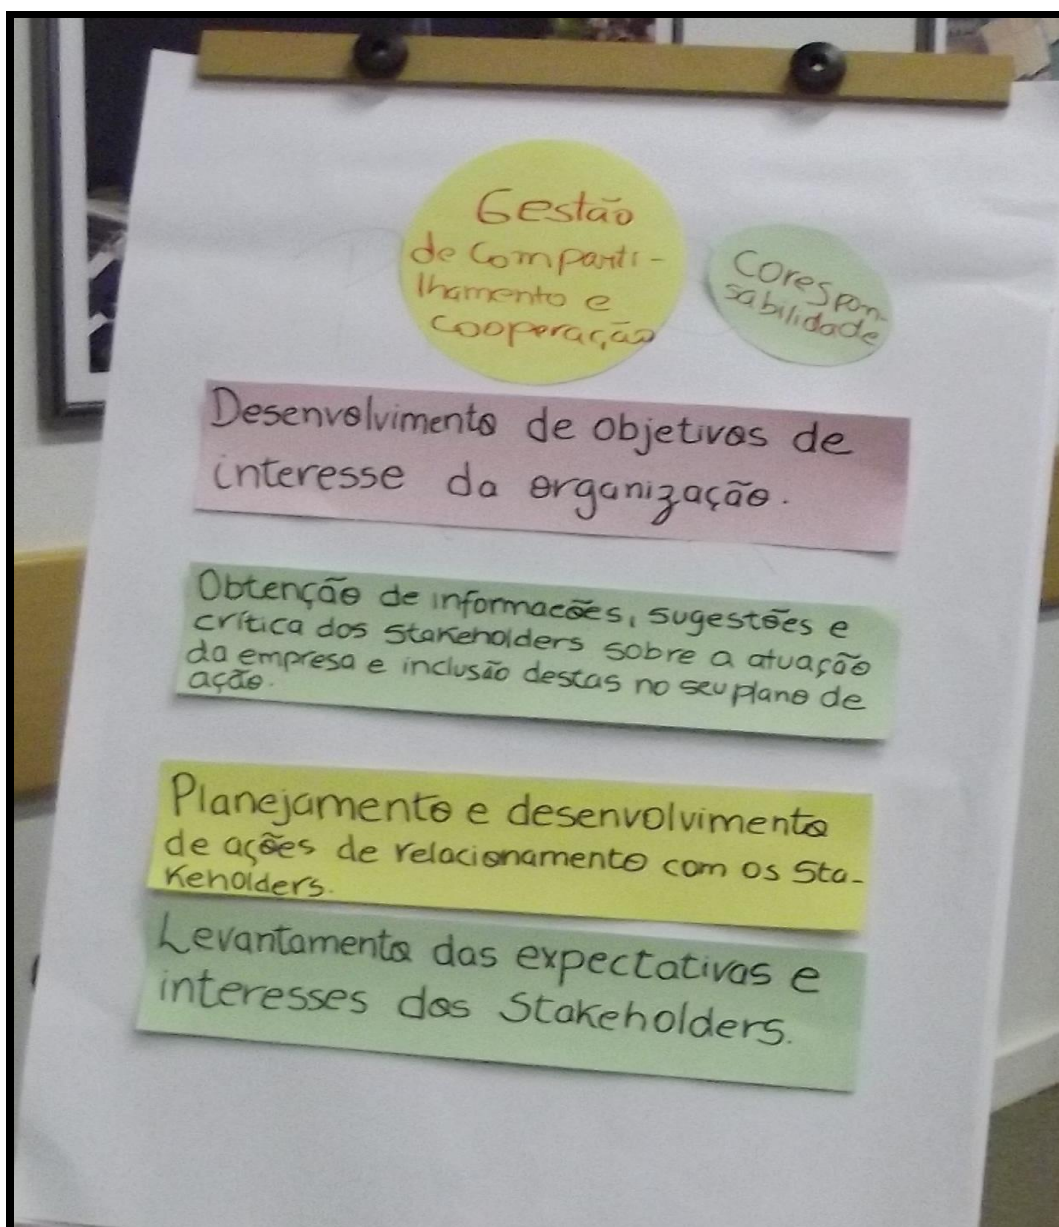 Gestão
de Comparti-
lhamento e
cooperação
Corespon-
sabilidade
Desenvolvimento de objetivos de
interesse da organização.
Obtenção de informacões, sugestões e
crítica dos stakeholders sobre a atuação
da empresa e inclusão destas no seu plano de
ação.
Planejamento e desenvolvimento
de ações de relacionamento com os Sta-
keholders.
Levantamento das expectativas e
interesses dos Stakeholders.